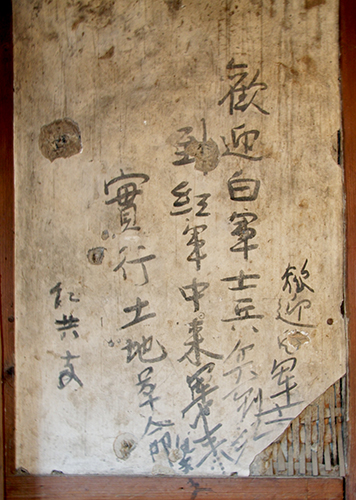 歡迎白軍士兵
到紅軍中來
實行土地革命
紅共支
歡迎白軍士